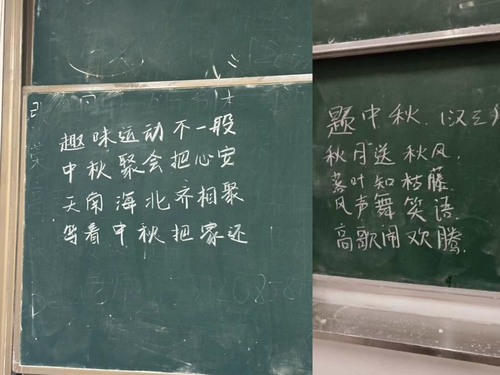 趣味运动不一般
中秋聚会把心安
天南海北齐相聚
笃看中秋把家还
题中秋.(汉三)
秋月送秋风.
落叶知枯藤.
风声舞笑语.
高歌闹欢腾.